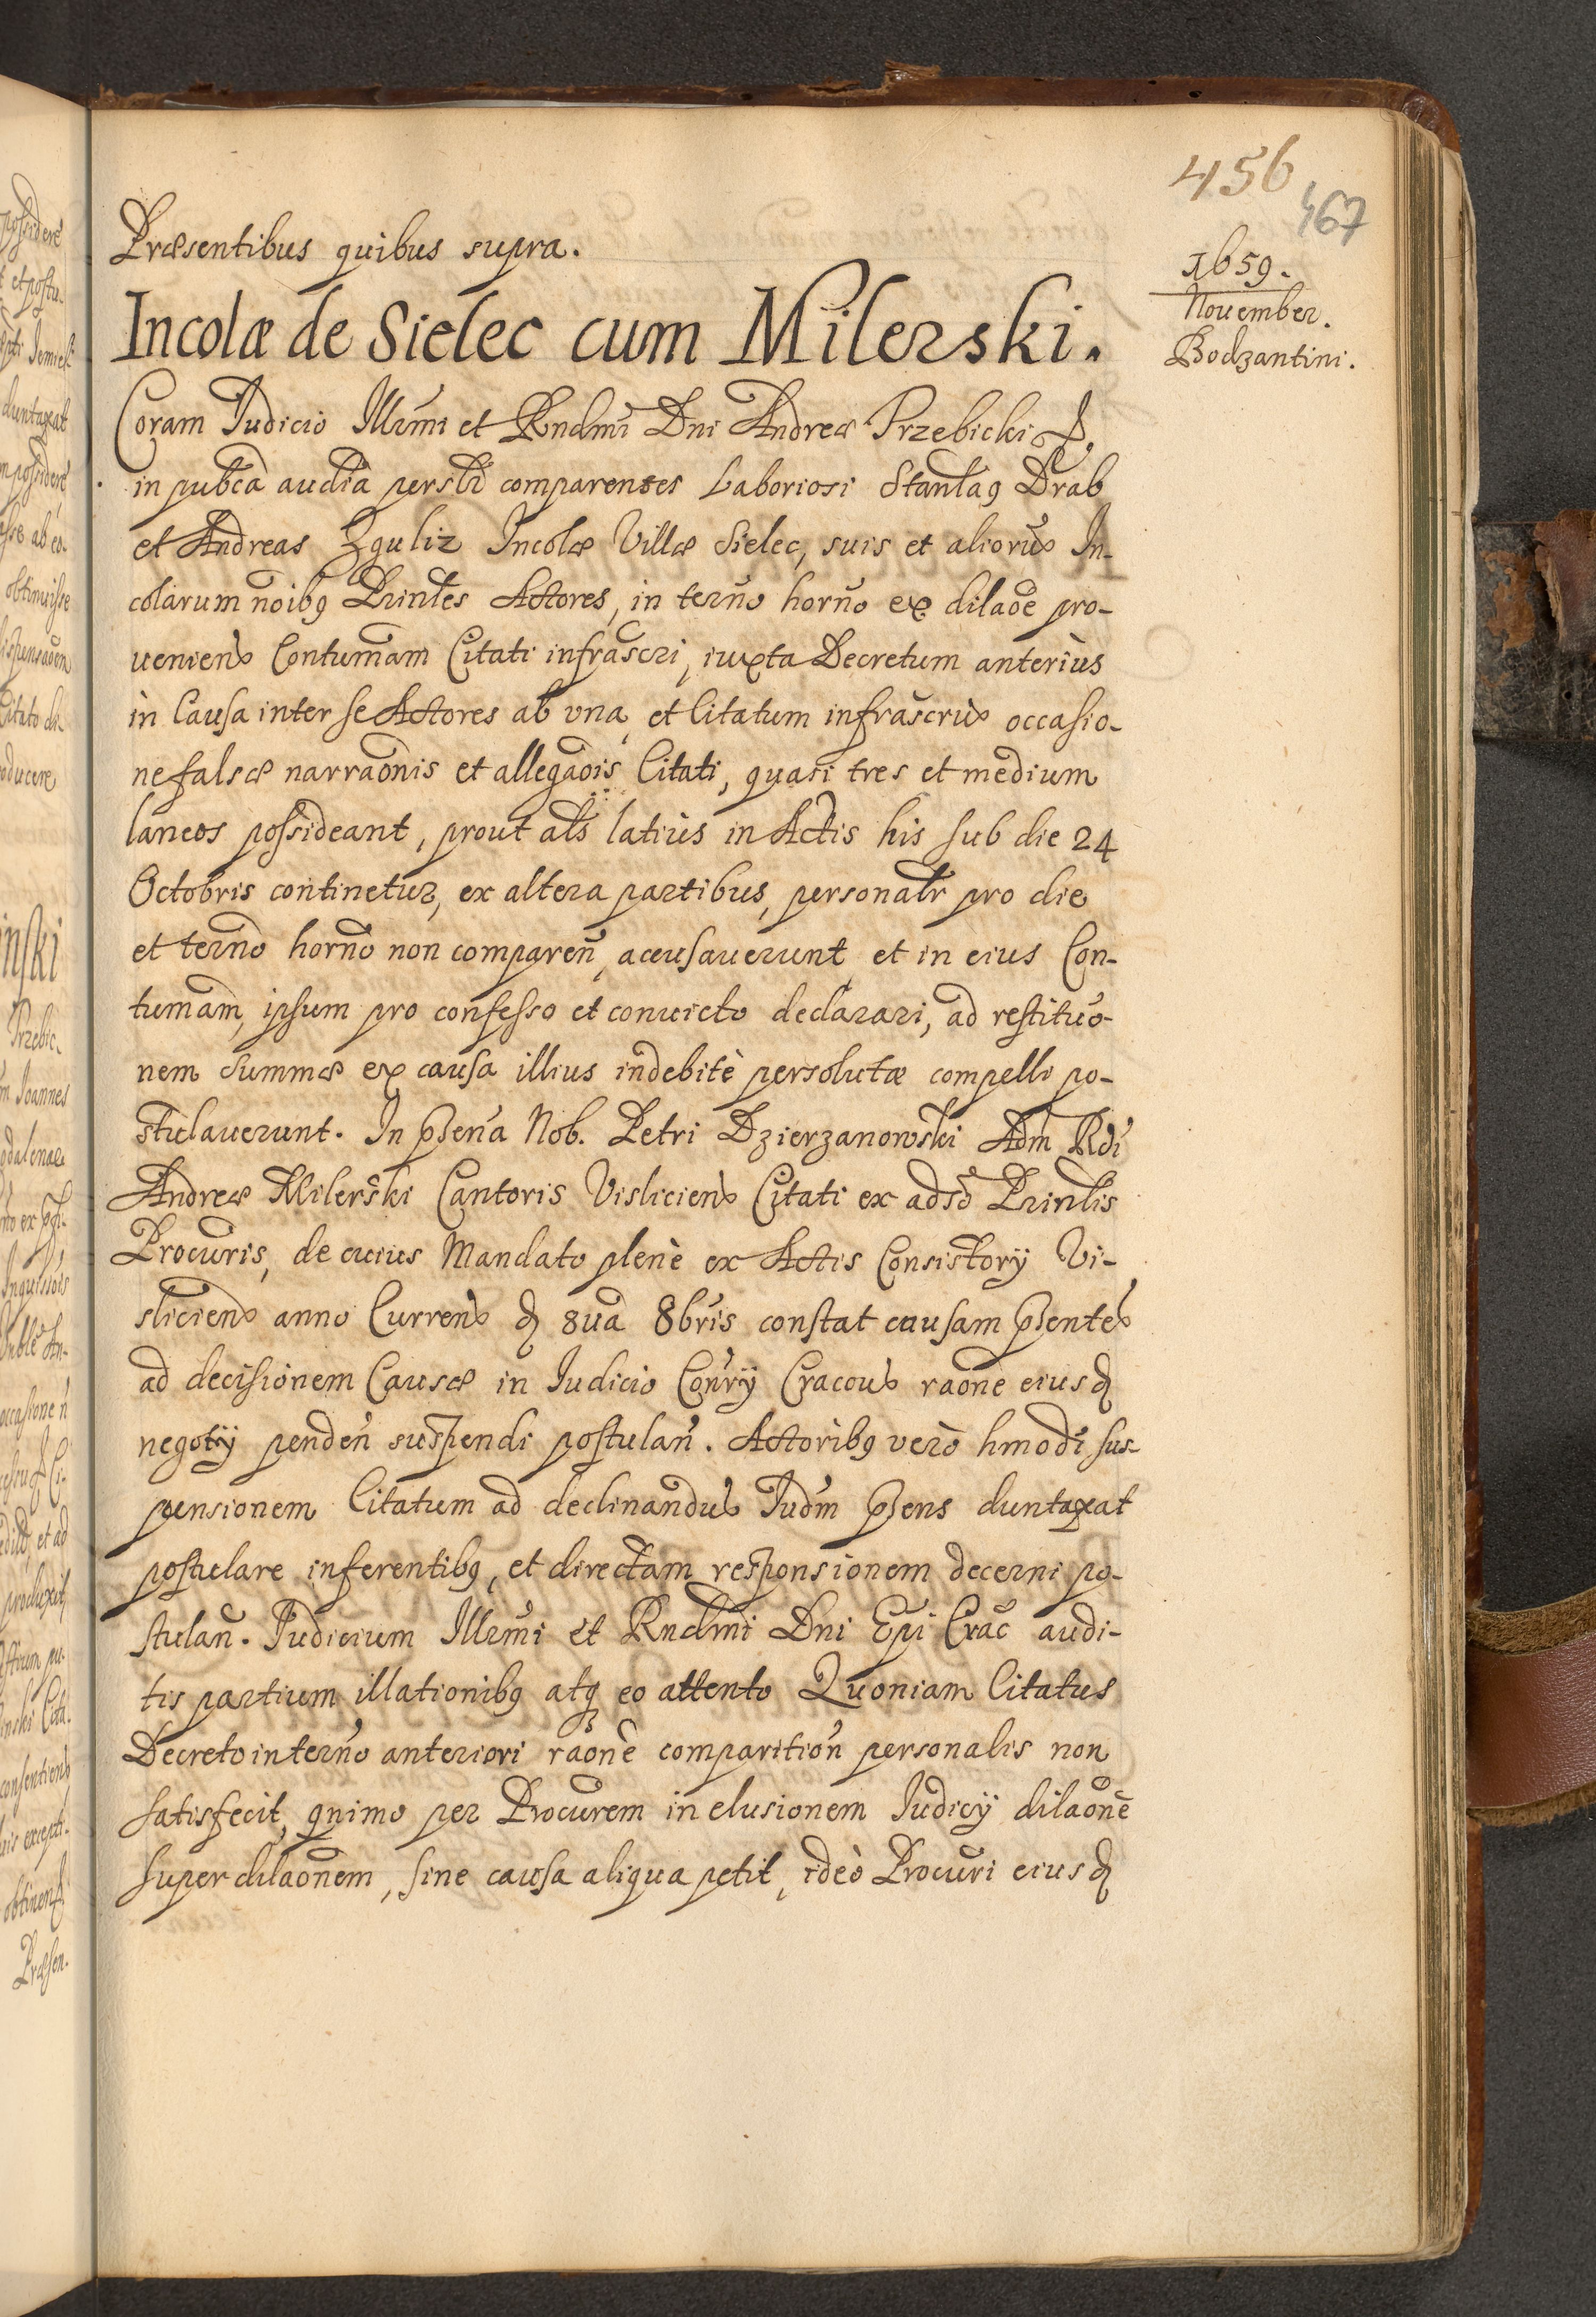 456
467
1659.
Nouember.
Bodzantini.
Præsentibus quibus supra.
Incolæ de Sielec cum Milerski.
Coram Iudicio Illrmi et Rndmi Dni Andreæ Przebicki
in pubca audia persltr comparentes Laboriosi Stanlaq Drab
et Andreas Zguliz Incolæ Villæ Sielec, suis et alioru In-
colarum noibq Prinles Actores, in terno horno ex dilaoe pro-
ueniens Contumam Citati infrascri, iuxta Decretum anterius
in Causa inter se Actores ab vna, et Citatum infrascrū occasio-
ne falsæ narraonis et allegaois Citati, quasi tres et medium
laneos possideant, prout als latius in Actis his sub die 24
Octobris continetur, ex altera partibus, personalr pro die
et terno horno non comparen, accusauerunt et in eius Con-
tumam, ipsum pro confesso et conuicto declarari, ad restituo-
nem summæ ex causa illius indebitè persolutæ compelli po-
stulauerunt. In pñena Nob. Petri Dzierzanowski Adm Rdi
Andreæ Milerski Cantoris Visliciens Citati ex adso Prinlis
Procuris, de cuius Mandato plenè ex Actis Consistorÿ Vi-
sliciens anno Currens d 8ua 8bris constat causam pñentes
ad decisionem Causæ in Iudicio Conrÿ Cracous raone eiusd
negotÿ penden suspendi postulan. Actoribq verò hmodi sus-
pensionem Citatum ad declinandū Iudm pñens duntaxat
postulare inferentibq, et directam responsionem decerni po-
stulan. Iudicium Illrmi et Rndmi Dni Epi Crac audi-
tis partium illationibq atq eo attento Quoniam Citatus
Decreto in terno anteriori raone comparition personalis non
satisfecit, qnimo per Procurem in elusionem Iudicÿ dilaone
super dilaonem, sine causa aliqua petit, ideò Procuri eiusd